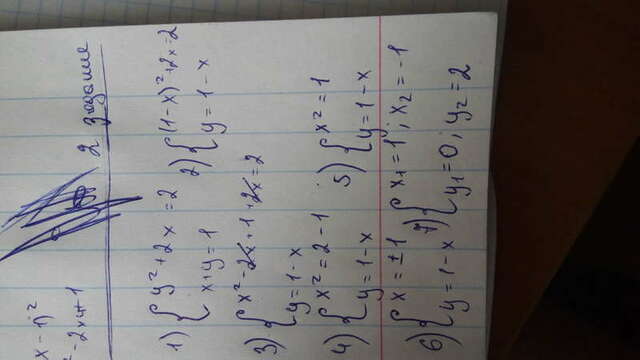 x - 1)²
² - 2x + 1
2 задание
1) { y² + 2x = 2
x + y = 1
2) { (1-x)² + 2x = 2
y = 1 - x
3) { x² - 2x + 1 + 2x = 2
y = 1 - x
4) { x² = 2 - 1
y = 1 - x
5) { x² = 1
y = 1 - x
6) { x = ±1
y = 1 - x
7) { x₁ = 1 ; x₂ = -1
y₁ = 0 ; y₂ = 2